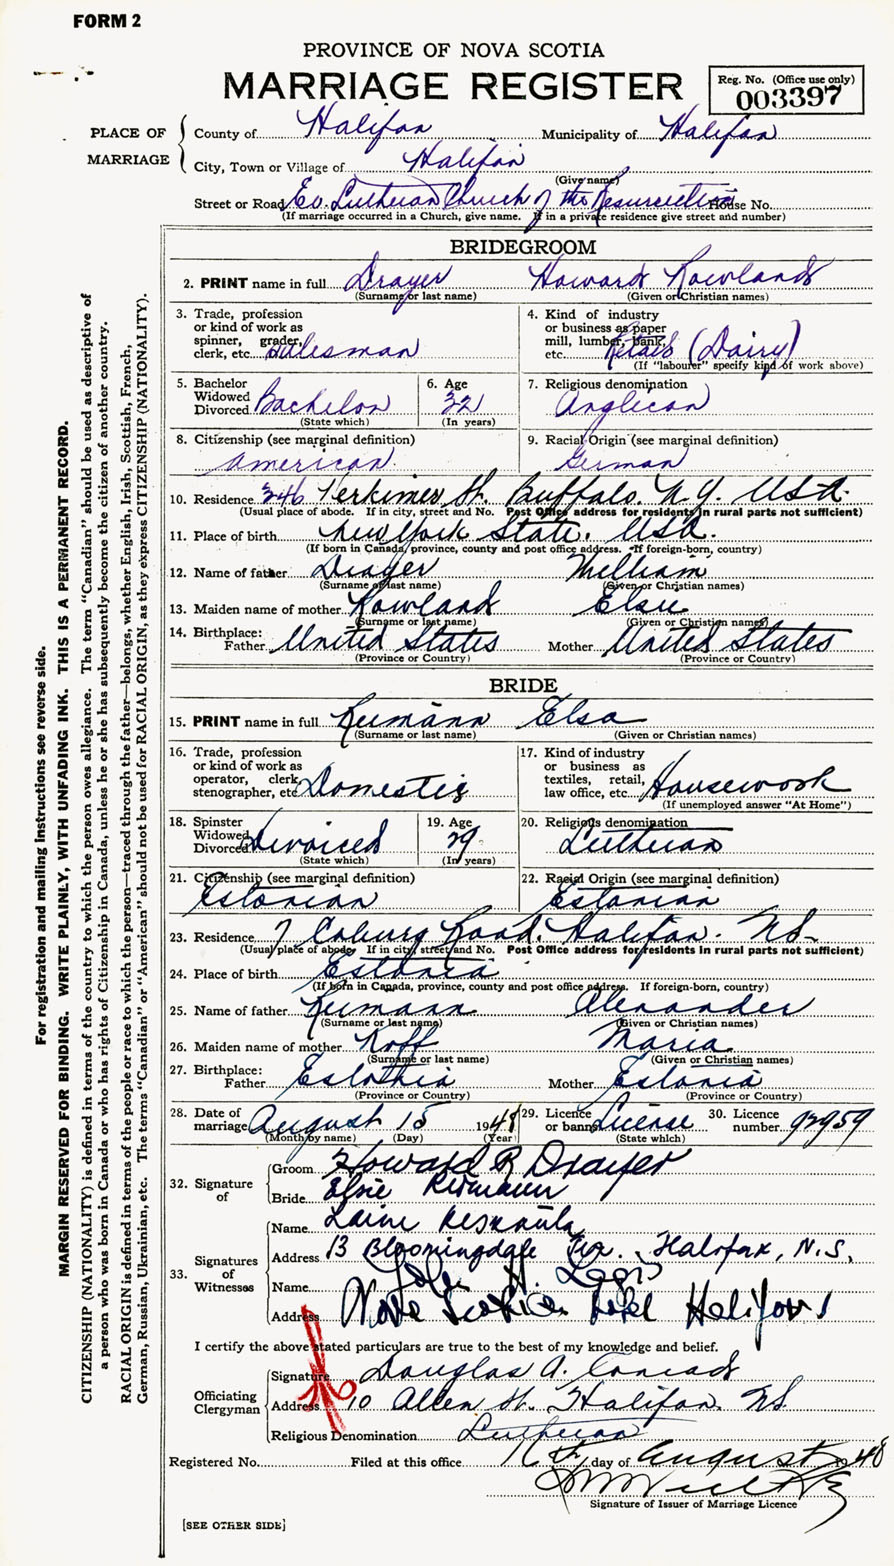 FORM 2
PROVINCE OF NOVA SCOTIA
MARRIAGE REGISTER
Reg. No. (Office use only)
003397
PLACE OF MARRIAGE
County of Halifax Municipality of Halifax
City, Town or Village of Halifax
(Give name)
Street or Road Ev. Lutheran Church of the Resurrection House No.
(If marriage occurred in a Church, give name. If in a private residence give street and number)
BRIDEGROOM
2. PRINT name in full Drayer Howard Rowland
(Surname or last name) (Given or Christian names)
3. Trade, profession or kind of work as spinner, grader, clerk, etc. Salesman
4. Kind of industry or business as paper mill, lumber, bank, etc. Retail (Dairy)
(If "labourer" specify kind of work above)
5. Bachelor Widowed Divorced Bachelor
(State which)
6. Age 32
(In years)
7. Religious denomination
Anglican
8. Citizenship (see marginal definition)
American
9. Racial Origin (see marginal definition)
German
10. Residence 346 Ferkimer St. Buffalo. N.Y. USA.
(Usual place of abode. If in city, street and No. Post Office address for residents in rural parts not sufficient)
11. Place of birth New York State. USA.
(If born in Canada, province, county and post office address. If foreign-born, country)
12. Name of father Drayer William
(Surname or last name) (Given or Christian names)
13. Maiden name of mother Rowland Elsie
(Surname or last name) (Given or Christian names)
14. Birthplace: Father United States Mother United States
(Province or Country) (Province or Country)
BRIDE
15. PRINT name in full Reimann Elsa
(Surname or last name) (Given or Christian names)
16. Trade, profession or kind of work as operator, clerk, stenographer, etc. Domestic
17. Kind of industry or business as textiles, retail, law office, etc. Housework
(If unemployed answer "At Home")
18. Spinster Widowed Divorced Divorced
(State which)
19. Age 29
(In years)
20. Religious denomination
Lutheran
21. Citizenship (see marginal definition)
Estonian
22. Racial Origin (see marginal definition)
Estonian
23. Residence 7 Coburg Road. Halifax. NS.
(Usual place of abode. If in city, street and No. Post Office address for residents in rural parts not sufficient)
24. Place of birth Estonia
(If born in Canada, province, county and post office address. If foreign-born, country)
25. Name of father Reimann Alexander
(Surname or last name) (Given or Christian names)
26. Maiden name of mother Koff Maria
(Surname or last name) (Given or Christian names)
27. Birthplace: Father Estonia Mother Estonia
(Province or Country) (Province or Country)
28. Date of marriage August 15 1948
(Month by name) (Day) (Year)
29. Licence or banns License
(State which)
30. Licence number 92959
32. Signature of
Groom Howard R Drayer
Bride Elsie Reimann
33. Signatures of Witnesses
Name Laine
Address 13 Bloomingdale Ter. Halifax, N.S.
Name John H.
Address Nova Scotian Hotel Halifax
I certify the above stated particulars are true to the best of my knowledge and belief.
Officiating Clergyman
Signature Douglas A. Conrad
Address 10 Allen St. Halifax. NS
Religious Denomination Lutheran
Registered No. Filed at this office 16th day of August 1948
Signature of Issuer of Marriage Licence
[SEE OTHER SIDE]
For registration and mailing instructions see reverse side.
MARGIN RESERVED FOR BINDING. WRITE PLAINLY, WITH UNFADING INK. THIS IS A PERMANENT RECORD.
CITIZENSHIP (NATIONALITY) is defined in terms of the country to which the person owes allegiance. The term "Canadian" should be used as descriptive of
a person who was born in Canada or who has rights of Citizenship in Canada, unless he or she has subsequently become the citizen of another country.
RACIAL ORIGIN is defined in terms of the people or race to which the person—traced through the father—belongs, whether English, Irish, Scottish, French,
German, Russian, Ukrainian, etc. The terms "Canadian" or "American" should not be used for RACIAL ORIGIN, as they express CITIZENSHIP (NATIONALITY).